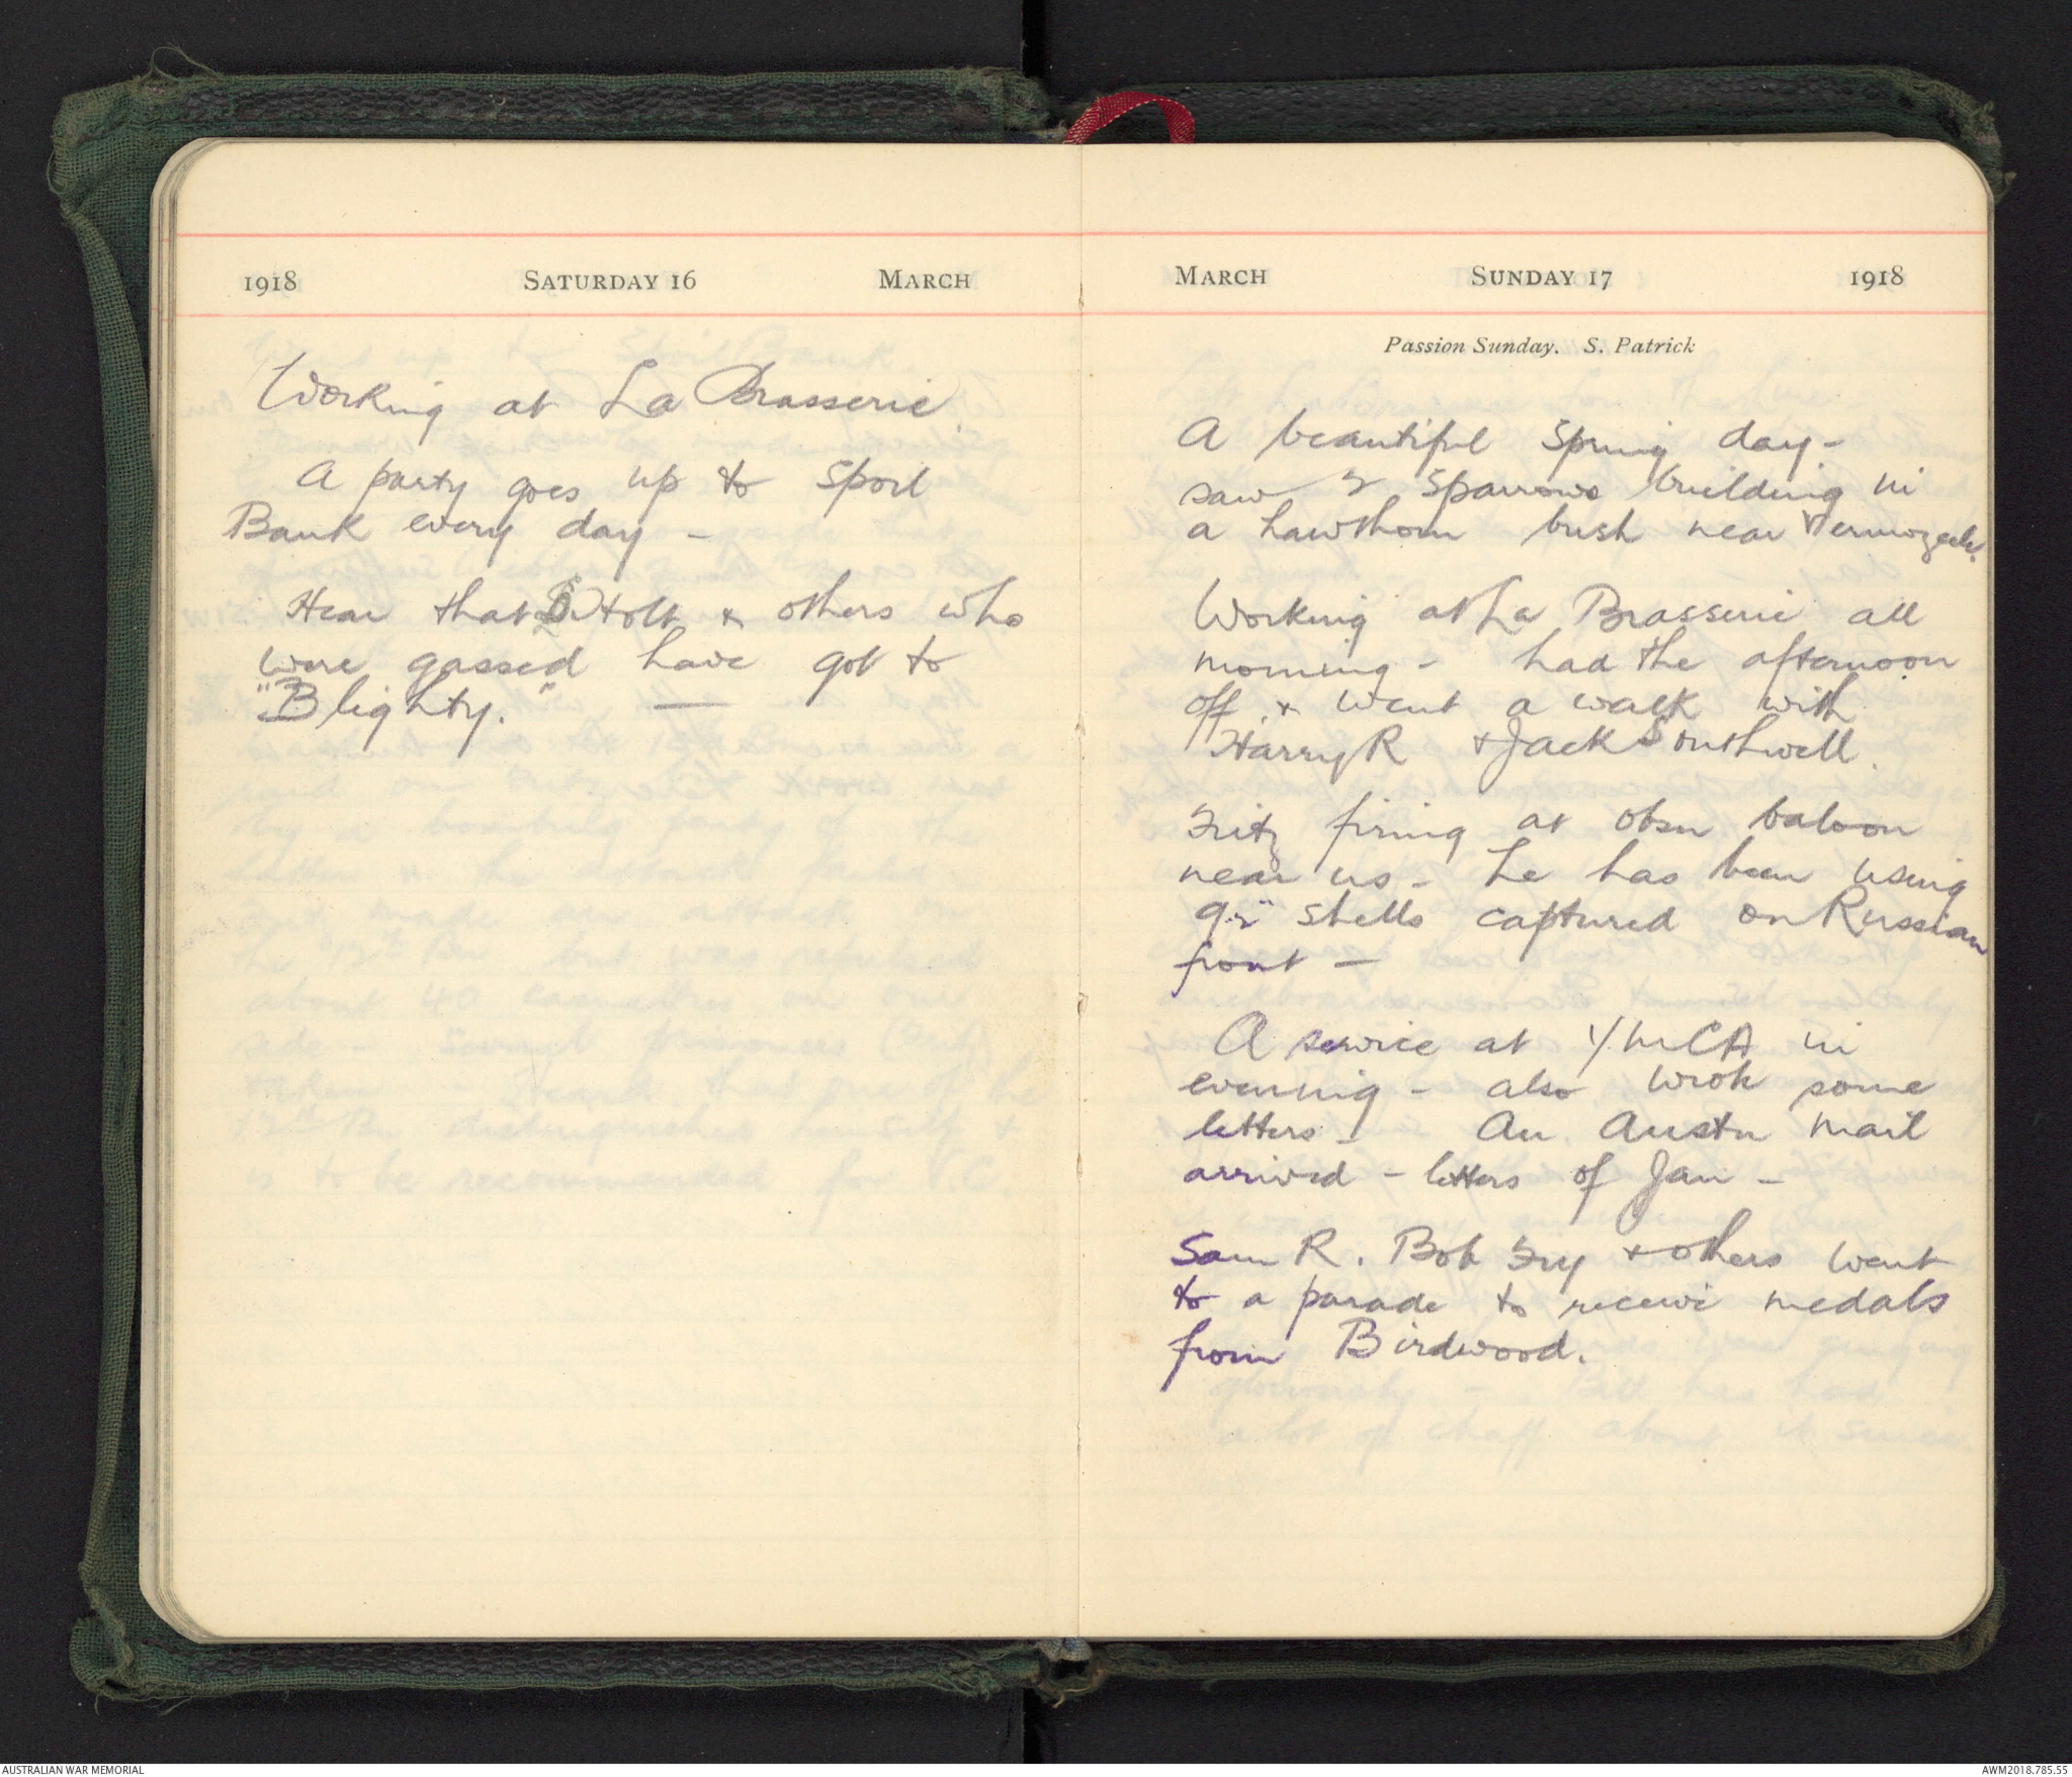 1918 SATURDAY 16 MARCH
Working at La Brasserie.
A party goes up to Spoil
Bank every day -
Hear that Holt & others who
were gassed have got to
"Blighty." —
MARCH SUNDAY 17 1918
Passion Sunday. S. Patrick
A beautiful Spring day -
saw 2 Sparrows building in
a hawthorn bush near
Working at La Brasserie all
morning - had the afternoon
off & went a walk with
Harry R & Jack Southwell.
Fritz firing at obsn baloon
near us - he has been using
shells captured on Russian
front —
A service at YMCA in
evening - also wrote some
letters - An Austn mail
arrived - letters of Jan -
Sam R. Bob Fry & others went
to a parade to receive medals
from Birdwood.
AUSTRALIAN WAR MEMORIAL
AWM2018.785.55